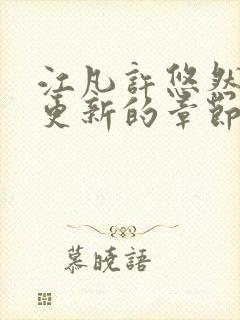 江凡許悠然
更新的章節
慕曉語